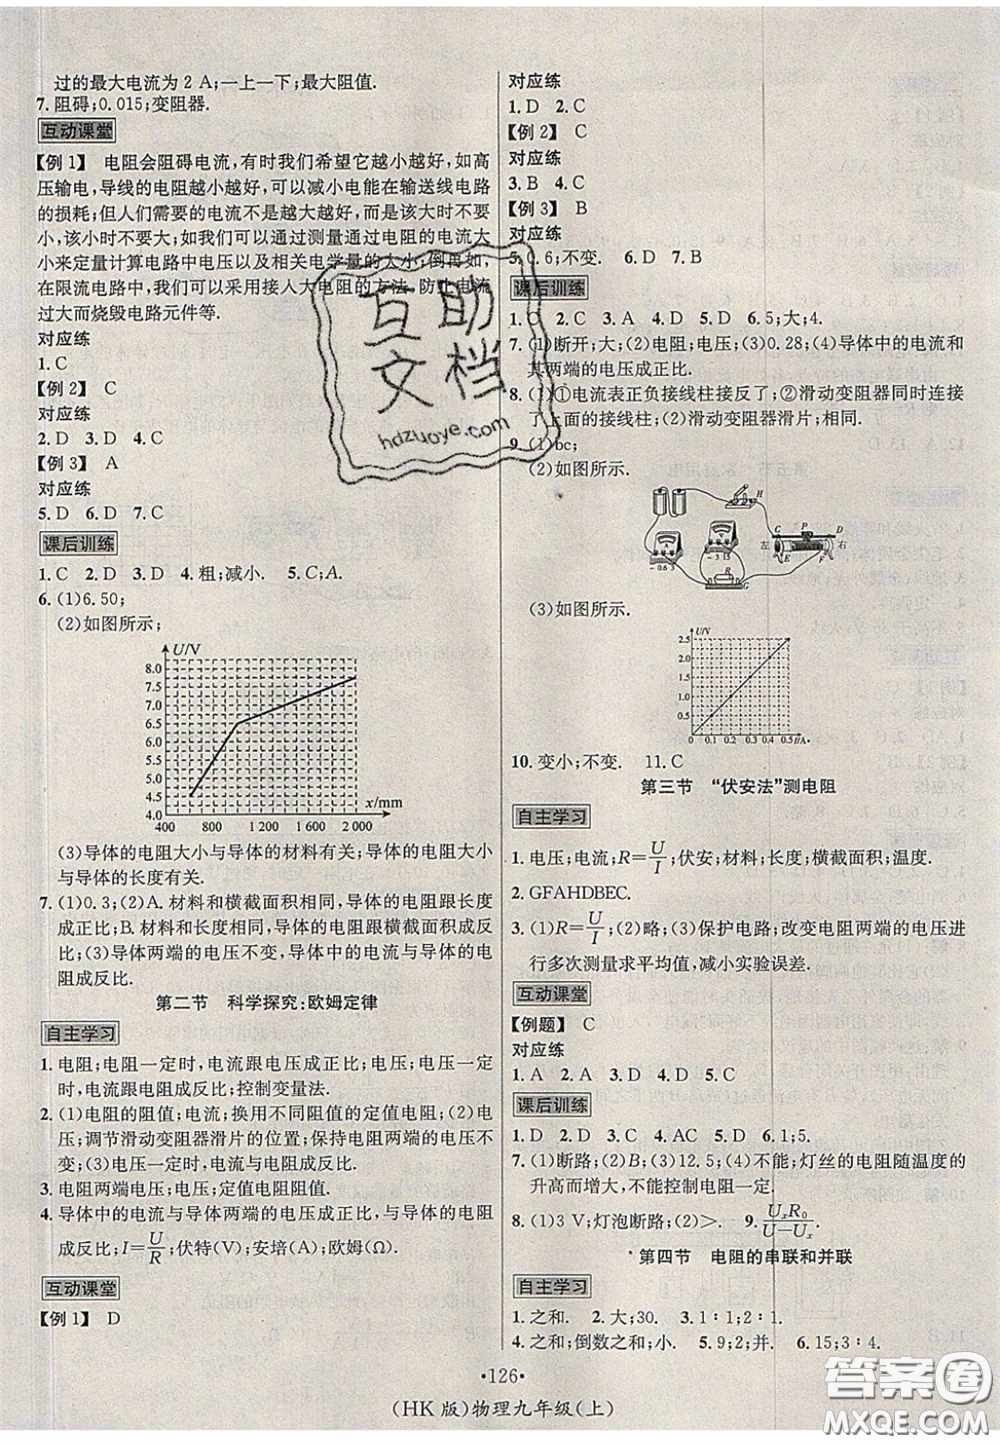 过的最大电流为 2 A;一上一下;最大阻值.
7. 阻碍;0.015;变阻器.
互动课堂
【例 1】 电阻会阻碍电流,有时我们希望它越小越好,如高
压输电,导线的电阻越小越好,可以减小电能在输送线电路
的损耗;但人们需要的电流不是越大越好,而是该大时不要
小,该小时不要大;如我们可以通过测量通过电阻的电流大
小来定量计算电路中电压以及相关电学量的大小;倒再如,
在限流电路中,我们可以采用接人大电阻的方法,防止电流
过大而烧毁电路元件等.
对应练
1. C
【例 2】 C
对应练
2. D 3. D 4. C
【例 3】 A
对应练
5. D 6. D 7. C
课后训练
1. C 2. D 3. D 4. 粗;减小. 5. C;A.
6. (1)6.50;
(2)如图所示;
U/V
8.0
7.5
7.0
6.5
6.0
5.5
5.0
4.5
4.0
x/mm
400 800 1 200 1 600 2 000
(3)导体的电阻大小与导体的材料有关;导体的电阻大小
与导体的长度有关.
7. (1)0.3;(2)A. 材料和横截面积相同,导体的电阻跟长度
成正比;B. 材料和长度相同,导体的电阻跟横截面积成反
比;(3)导体两端的电压不变,导体中的电流与导体的电
阻成反比.
第二节 科学探究:欧姆定律
自主学习
1. 电阻;电阻一定时,电流跟电压成正比;电压;电压一定
时,电流跟电阻成反比;控制变量法.
2. (1)电阻的阻值;电流;换用不同阻值的定值电阻;(2)电
压;调节滑动变阻器滑片的位置;保持电阻两端的电压不
变;(3)电压一定时,电流与电阻成反比.
3. 电阻两端电压;电压;定值电阻阻值.
4. 导体中的电流与导体两端的电压成正比,与导体的电阻
成反比;I=U/R;伏特(V);安培(A);欧姆(Ω).
互动课堂
【例 1】 D
对应练
1. D 2. C
【例 2】 C
对应练
3. B 4. C
【例 3】 B
对应练
5. 0.6;不变. 6. D 7. B
课后训练
1. C 2. C 3. A 4. D 5. D 6. 5;大;4.
7. (1)断开;大;(2)电阻;电压;(3)0.28;(4)导体中的电流和
其两端的电压成正比.
8. (1)①电流表正负接线柱接反了;②滑动变阻器同时连接
了上面的接线柱;(2)滑动变阻器滑片;相同.
9. (1)bc;
(2)如图所示.
H
C P D
左 右
E F
− 0.6 3
− 3 15
R
G
(3)如图所示.
U/V
2.5
2.0
1.5
1.0
0.5
0 0.1 0.2 0.3 0.4 0.5 I/A
10. 变小;不变. 11. C
第三节 “伏安法”测电阻
自主学习
1. 电压;电流;R=U/I;伏安;材料;长度;横截面积;温度.
2. GFAHDBEC.
3. (1)R=U/I;(2)略;(3)保护电路;改变电阻两端的电压进
行多次测量求平均值,减小实验误差.
互动课堂
【例题】 C
对应练
1. A 2. A 3. A 4. D 5. C
课后训练
1. D 2. D 3. C 4. AC 5. D 6. 1;5.
7. (1)断路;(2)B;(3)12.5;(4)不能;灯丝的电阻随温度的
升高而增大,不能控制电阻一定.
8. (1)3 V;灯泡断路;(2)>. 9. UₓR₀/(U−Uₓ).
第四节 电阻的串联和并联
自主学习
1. 之和. 2. 大;30. 3. 1∶1;2∶1.
4. 之和;倒数之和;小. 5. 9;2;并. 6. 15;3∶4.
·126·
(HK 版)物理九年级(上)
互助
文档
hdzuoye.com
答案圈
MXQE.COM